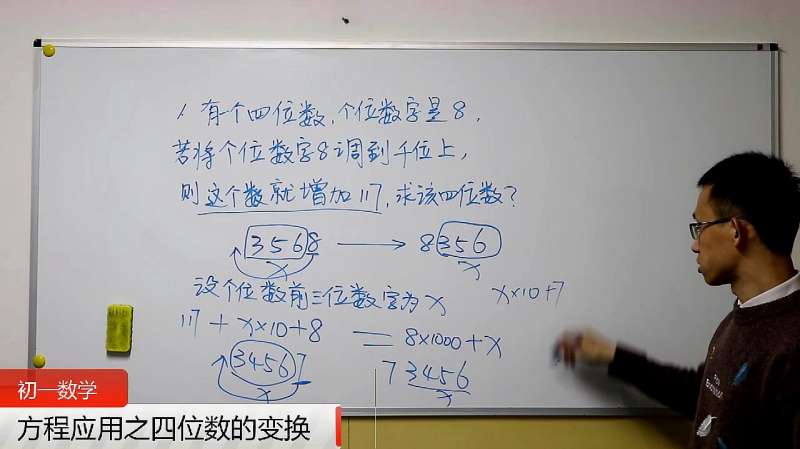 1 有个四位数,个位数字是8,
若将个位数字8调到千位上,
则这个数就增加117,求该四位数?
3568 → 8356
x x
设个位数前三位数字为x x×10+7
117+x×10+8 = 8×1000+x
34567 73456
x x
初一数学
方程应用之四位数的变换